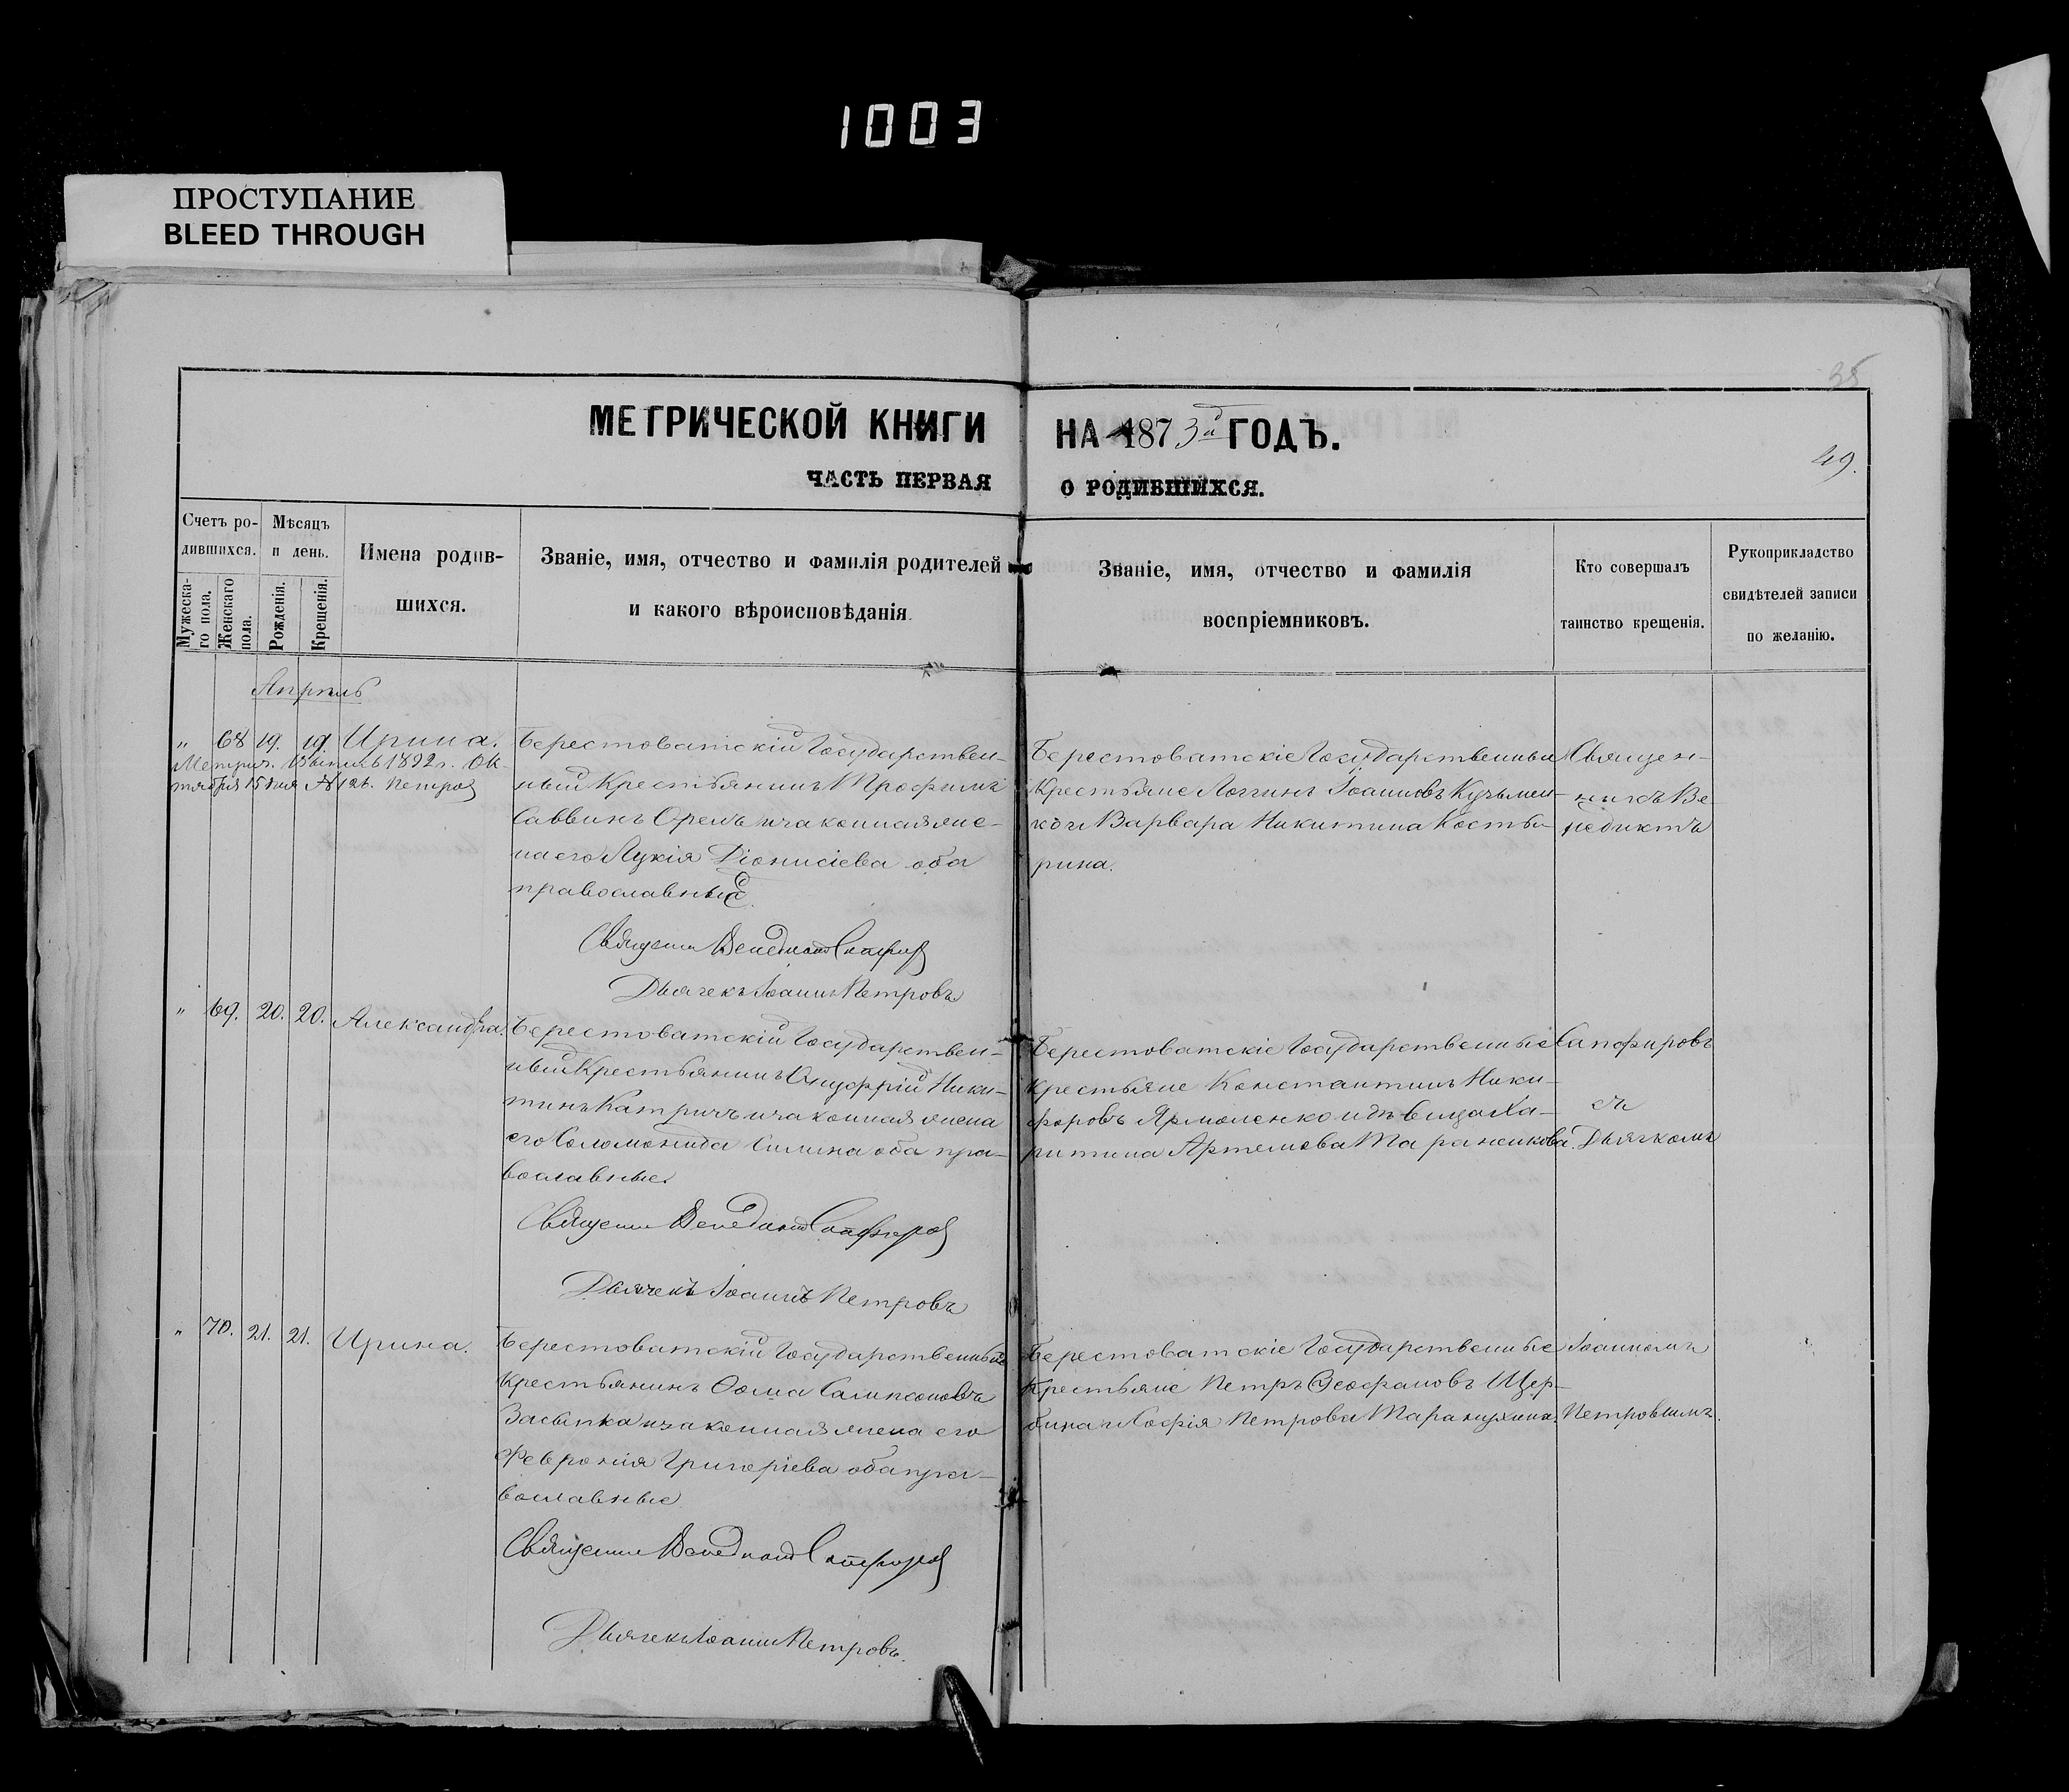 1003
ПРОСТУПАНИЕ
BLEED THROUGH
38
МЕТРИЧЕСКОЙ КНИГИ НА 1873й ГОДЪ.
49.
ЧАСТЬ ПЕРВАЯ О РОДИВШИХСЯ.
Счетъ ро-
дившихся.
Мужеска-
го пола.
Женскаго
пола.
Мѣсяцъ
и день.
Рожденія.
Крещенія.
Имена родив-
шихся.
Званіе, имя, отчество и фамилія родителей
и какого вѣроисповѣданія.
Званіе, имя, отчество и фамилія
воспріемниковъ.
Кто совершалъ
таинство крещенія.
Рукоприкладство
свидѣтелей записи
по желанію.
Апрѣль
" 68 19. 19. Ирина.
Метрич. выпись 1892 г. Ок-
тября 15 дня № 128. Петров
Берестоватскій Государствен-
ный Крестьянинъ Трофимъ
Саввинъ Орелъ и законная же-
на его Лукія Діонисіева оба
православные.
Священни Венедиктъ Сапфиров
Дьячекъ Іоаннъ Петровъ
Берестоватскіе Государственные
Крестьяне Логгинъ Іоанновъ Кузьмен-
ко и Варвара Никитина Косты-
рина.
Священ-
никъ Ве-
недиктъ
" 69. 20. 20. Александра.
Берестоватскій Государствен-
ный Крестьянинъ Онуфрій Ники-
тинъ Катричъ и законная жена
его Соломонида Силина оба пра-
вославные.
Священни Венедиктъ Сапфиров
Дьячекъ Іоаннъ Петровъ
Берестоватскіе Государственные
крестьяне Константинъ Ники-
форовъ Ярмоленко и дѣвица Ха-
ритина Артемова Тараненкова.
Сапфировъ
съ
Дьячкомъ
" 70. 21. 21. Ирина.
Берестоватскій Государственный
Крестьянинъ Ѳома Сампсоновъ
Засыпка и законная жена его
Феввронія Григоріева оба пра-
вославные
Священни Венедиктъ Сапфиров
Дьячекъ Іоаннъ Петровъ.
Берестоватскіе Государственные
Крестьяне Петръ Ѳеофановъ Щер-
бина и Софія Петрова Таранухина.
Іоанномъ
Петровымъ.